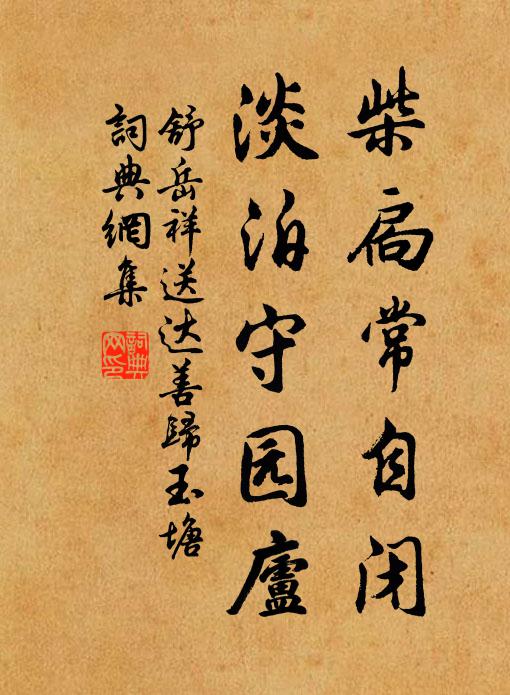 柴扃常自闭
淡泊守园廬
舒岳祥送达善歸玉塘
詞典網集
詞典网印